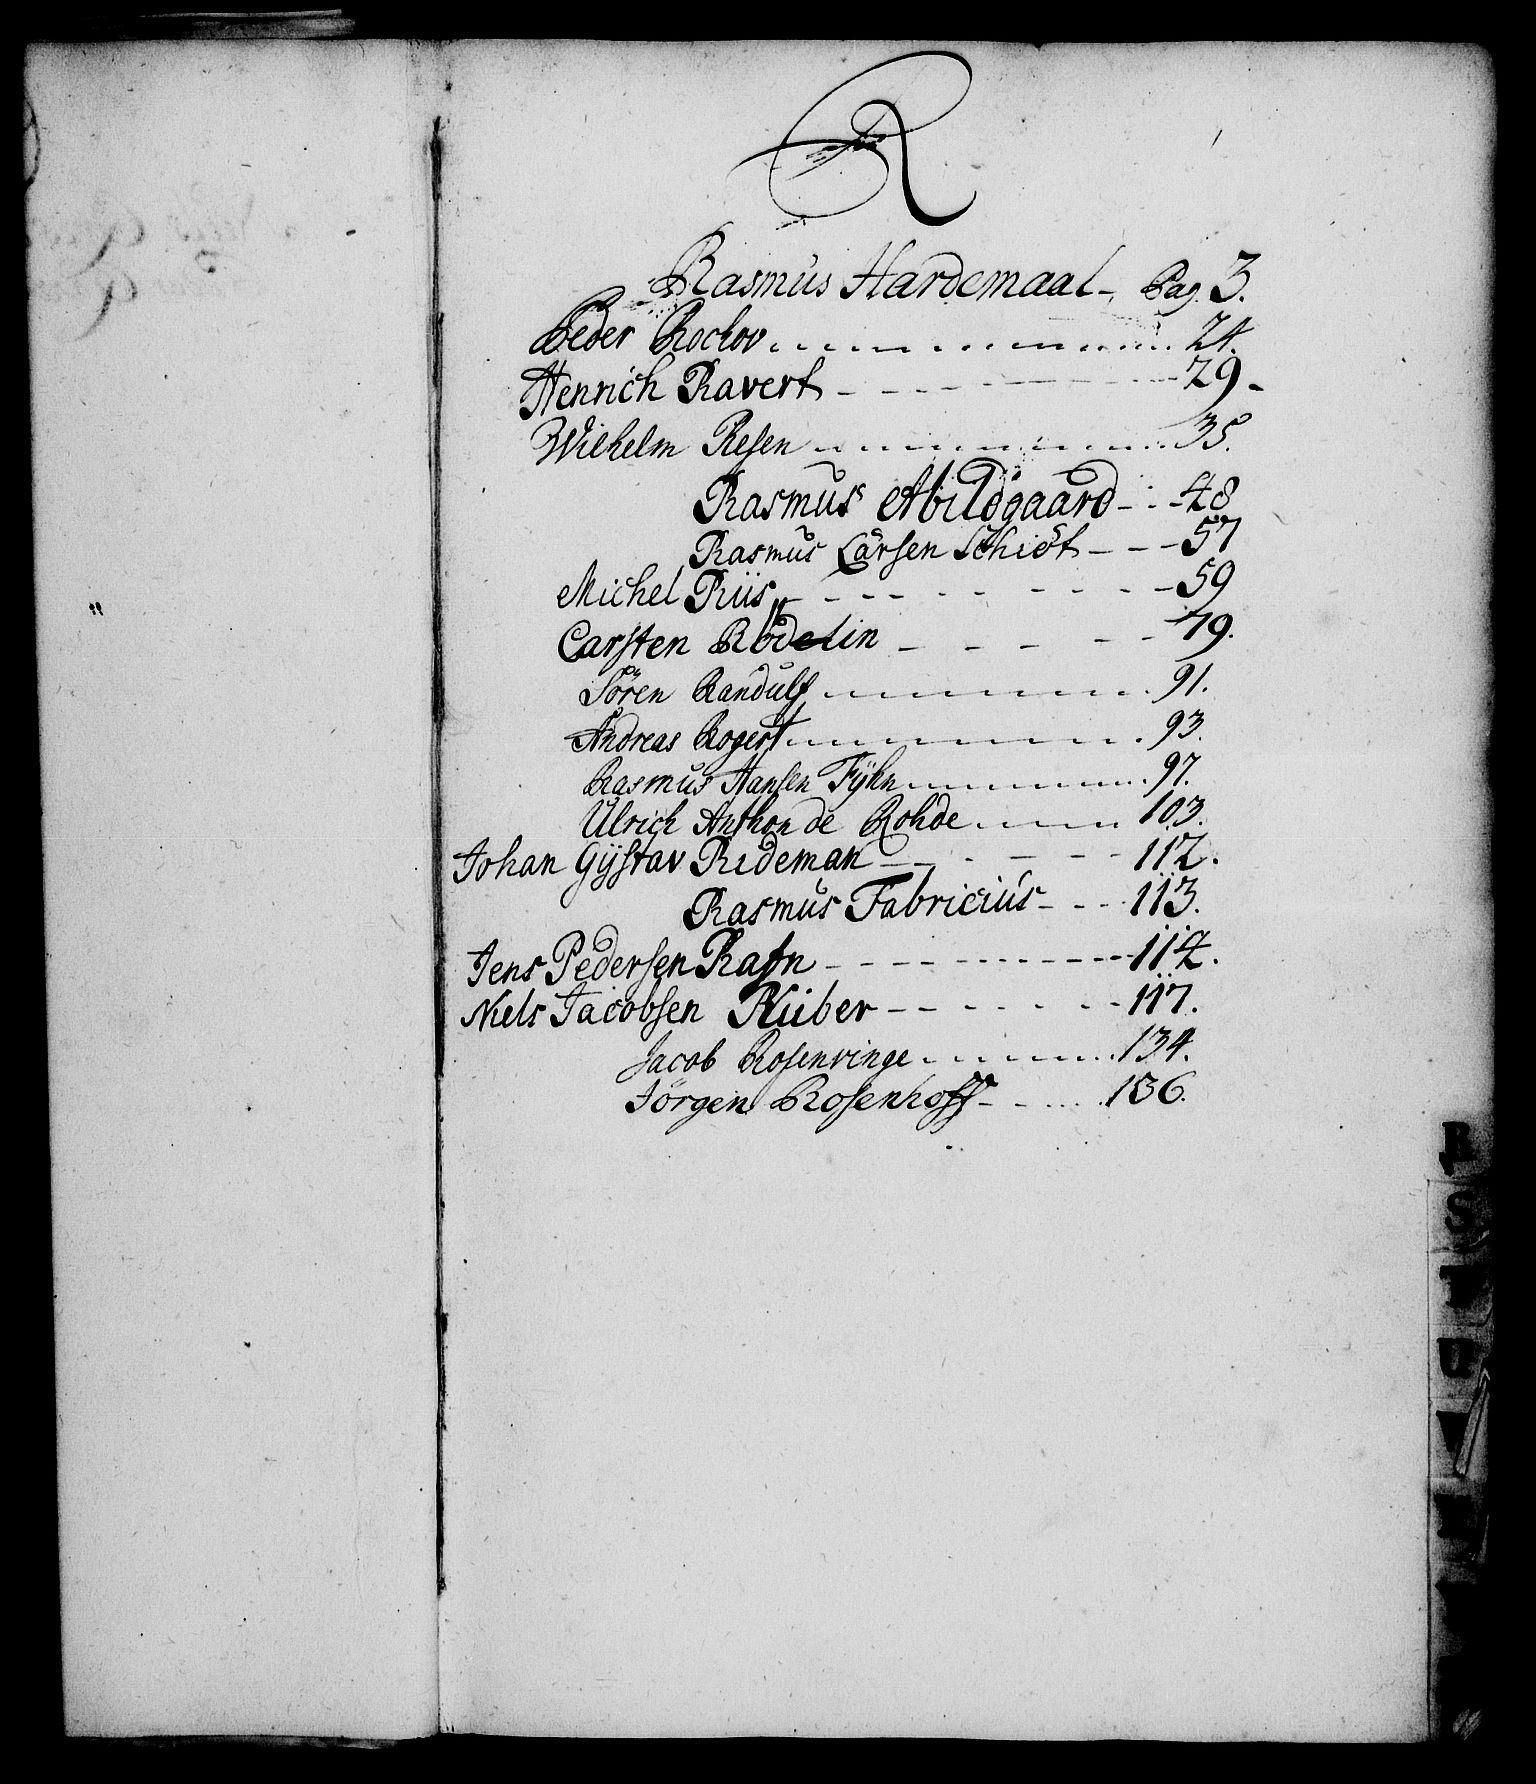 R
Rasmus Hardemaal - Pag. 3.
Peder Rochov 24.
Henrich Ravert 29.
Wilhelm Resen 35.
Rasmus Abildgaard 48
Rasmus Larsen Schiöt 57
Michel Riis 59
Carsten Rödelin 79.
Sören Randulf 91.
Andreas Rogert 93.
Rasmus Hansen Fÿhn 97.
Ulrich Anthon de Rohde 103.
Johan Gÿstav Rideman 112.
Rasmus Fabricius 113.
Jens Pedersen Rafn 114.
Niels Jacobsen Rüber 117.
Jacob Rosenvinge 134.
Jörgen Rosenhoff 136.
R
S
T
U
V